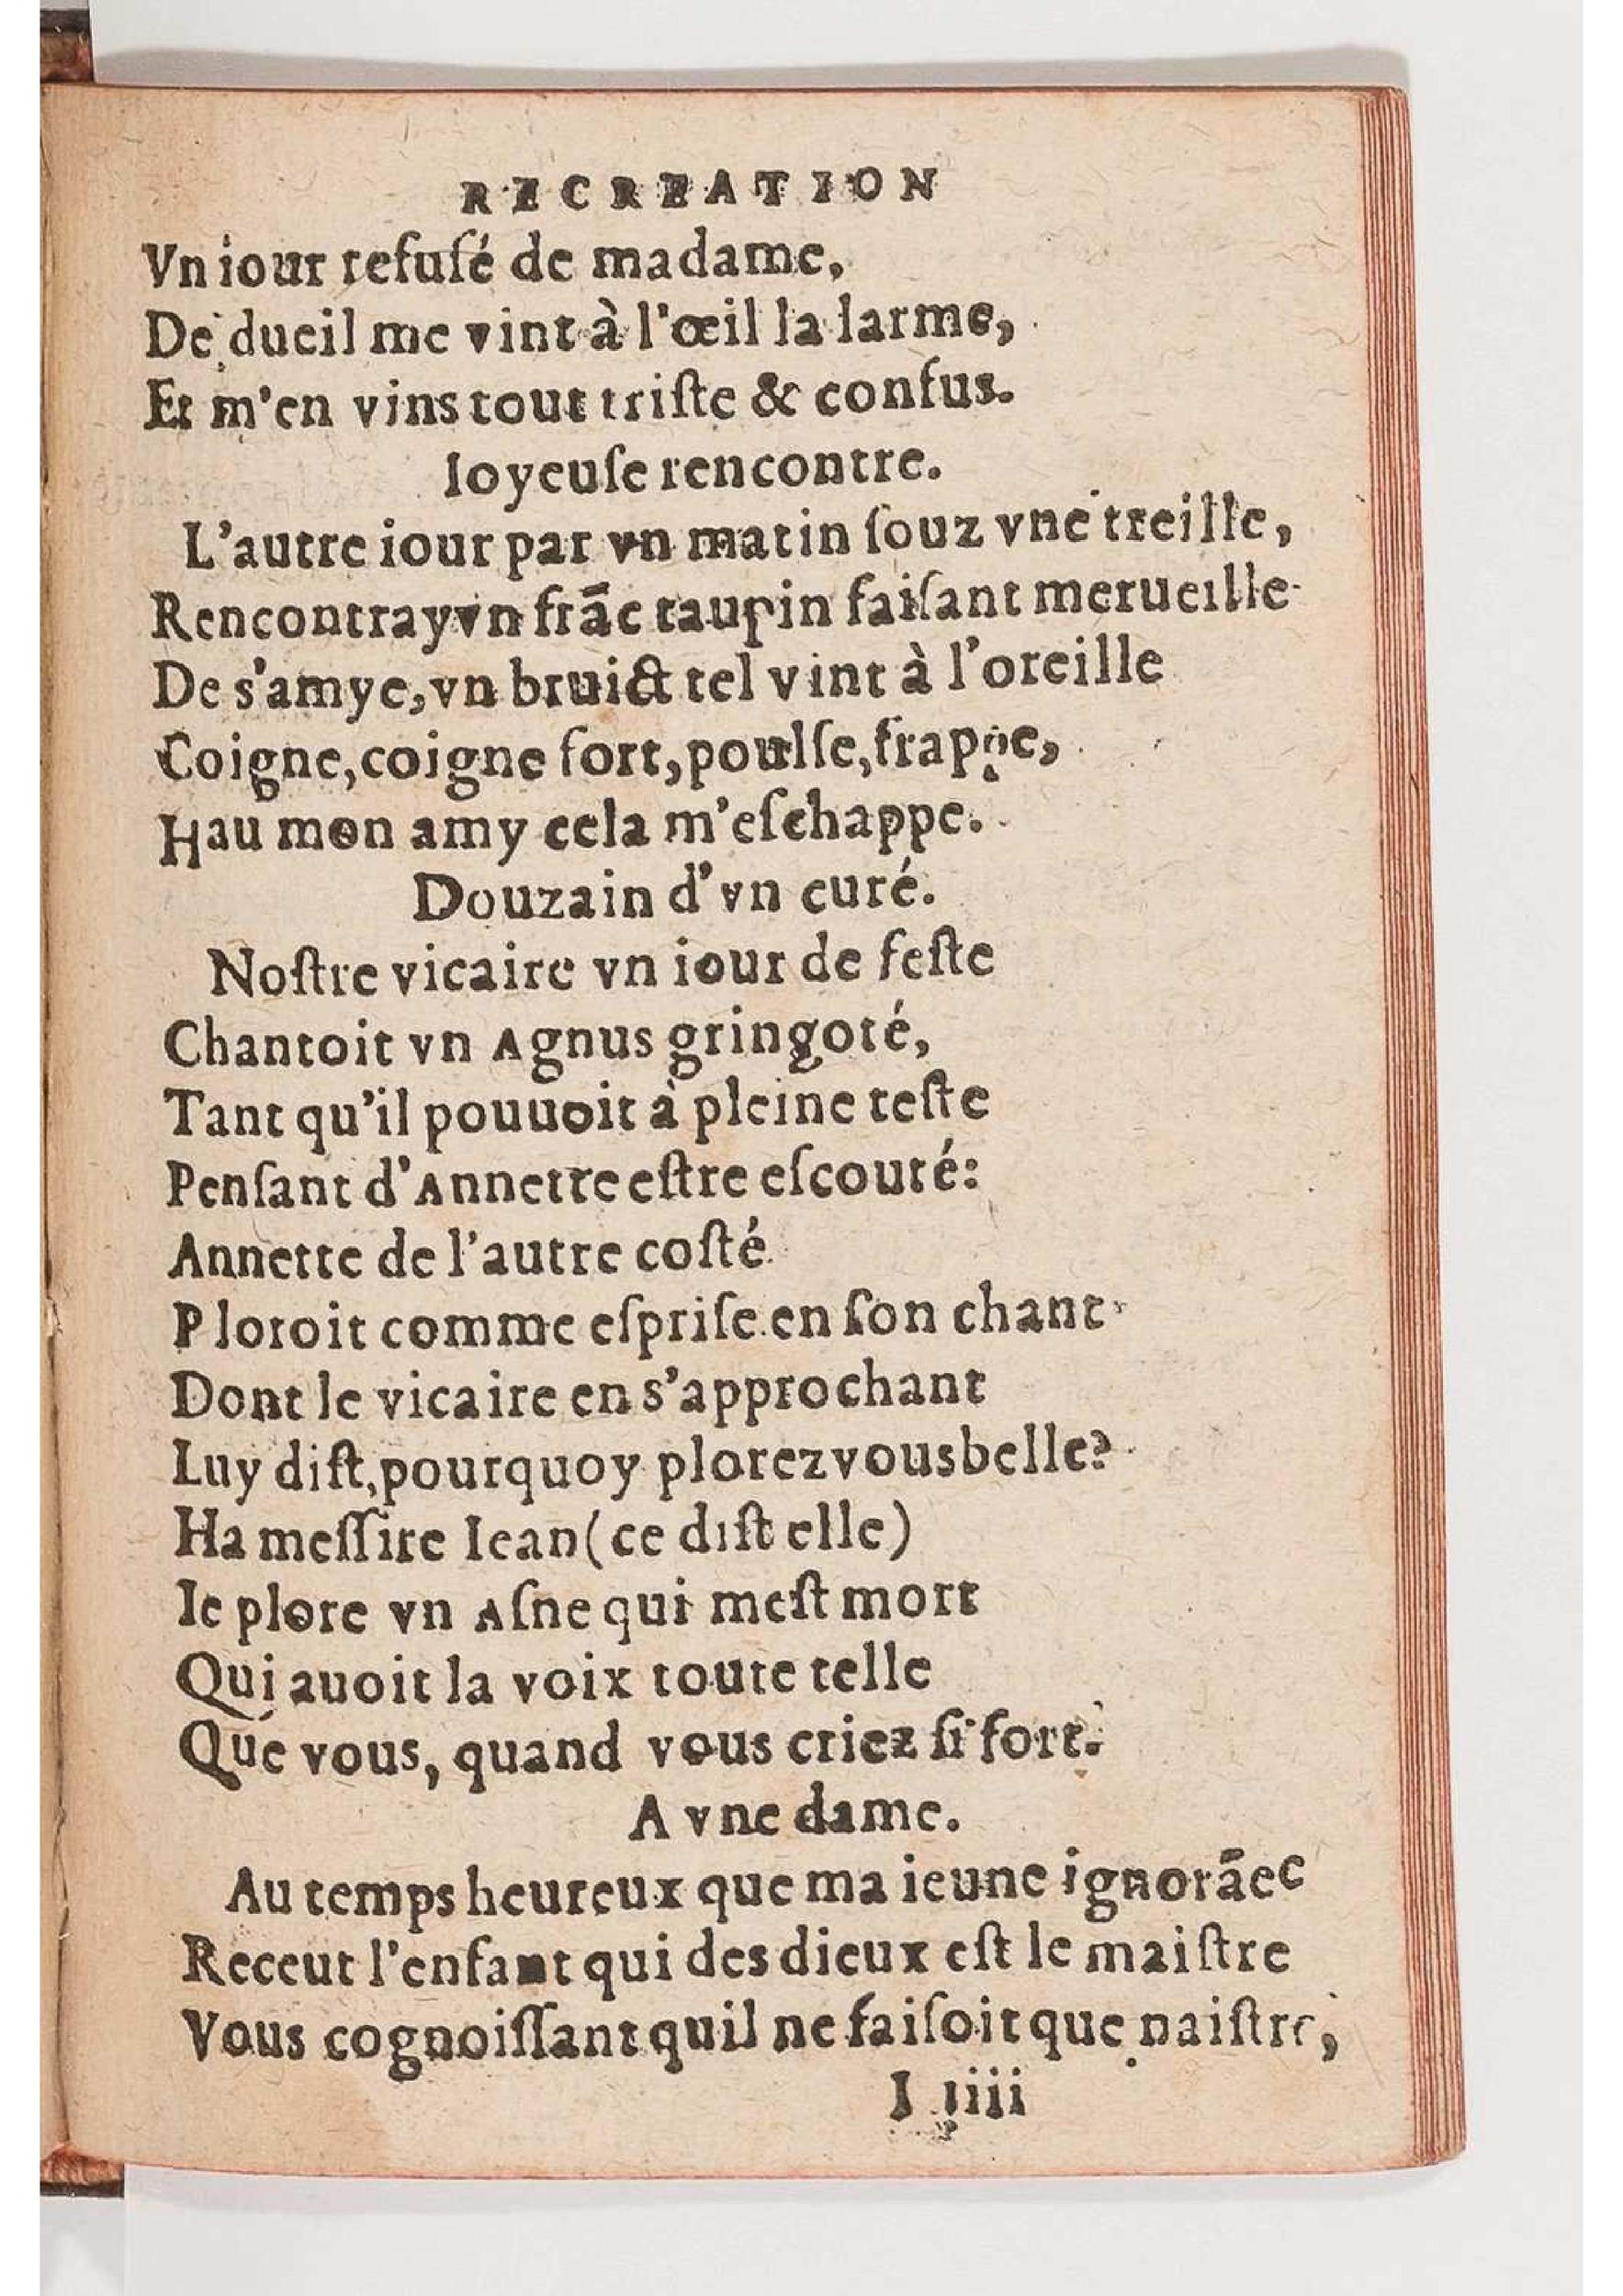 RECREATION
Vn iour refuſé de madame,
De dueil me vint à l'œil la larme,
Et m'en vins tout triſte & confus.
Ioyeuſe rencontre.
L'autre iour par vn matin ſouz vne treille,
Rencontray vn frãc taupin faiſant merueille
De s'amye, vn bruict tel vint à l'oreille
Coigne, coigne fort, poulſe, frappe,
Hau mon amy cela m'eſchappe.
Douzain d'vn curé.
Noſtre vicaire vn iour de feſte
Chantoit vn Agnus gringoté,
Tant qu'il pouuoit à pleine teſte
Penſant d'Annette eſtre eſcouté:
Annette de l'autre coſté
Ploroit comme eſpriſe en ſon chant
Dont le vicaire en s'approchant
Luy diſt, pourquoy plorez vous belle?
Ha meſſire Iean (ce diſt elle)
Ie plore vn Aſne qui meſt mort
Qui auoit la voix toute telle
Que vous, quand vous criez ſi fort.
A vne dame.
Au temps heureux que ma ieune ignorãec
Receut l'enfant qui des dieux eſt le maiſtre
Vous cognoiſſant quil ne faiſoit que naiſtre,
I iiii